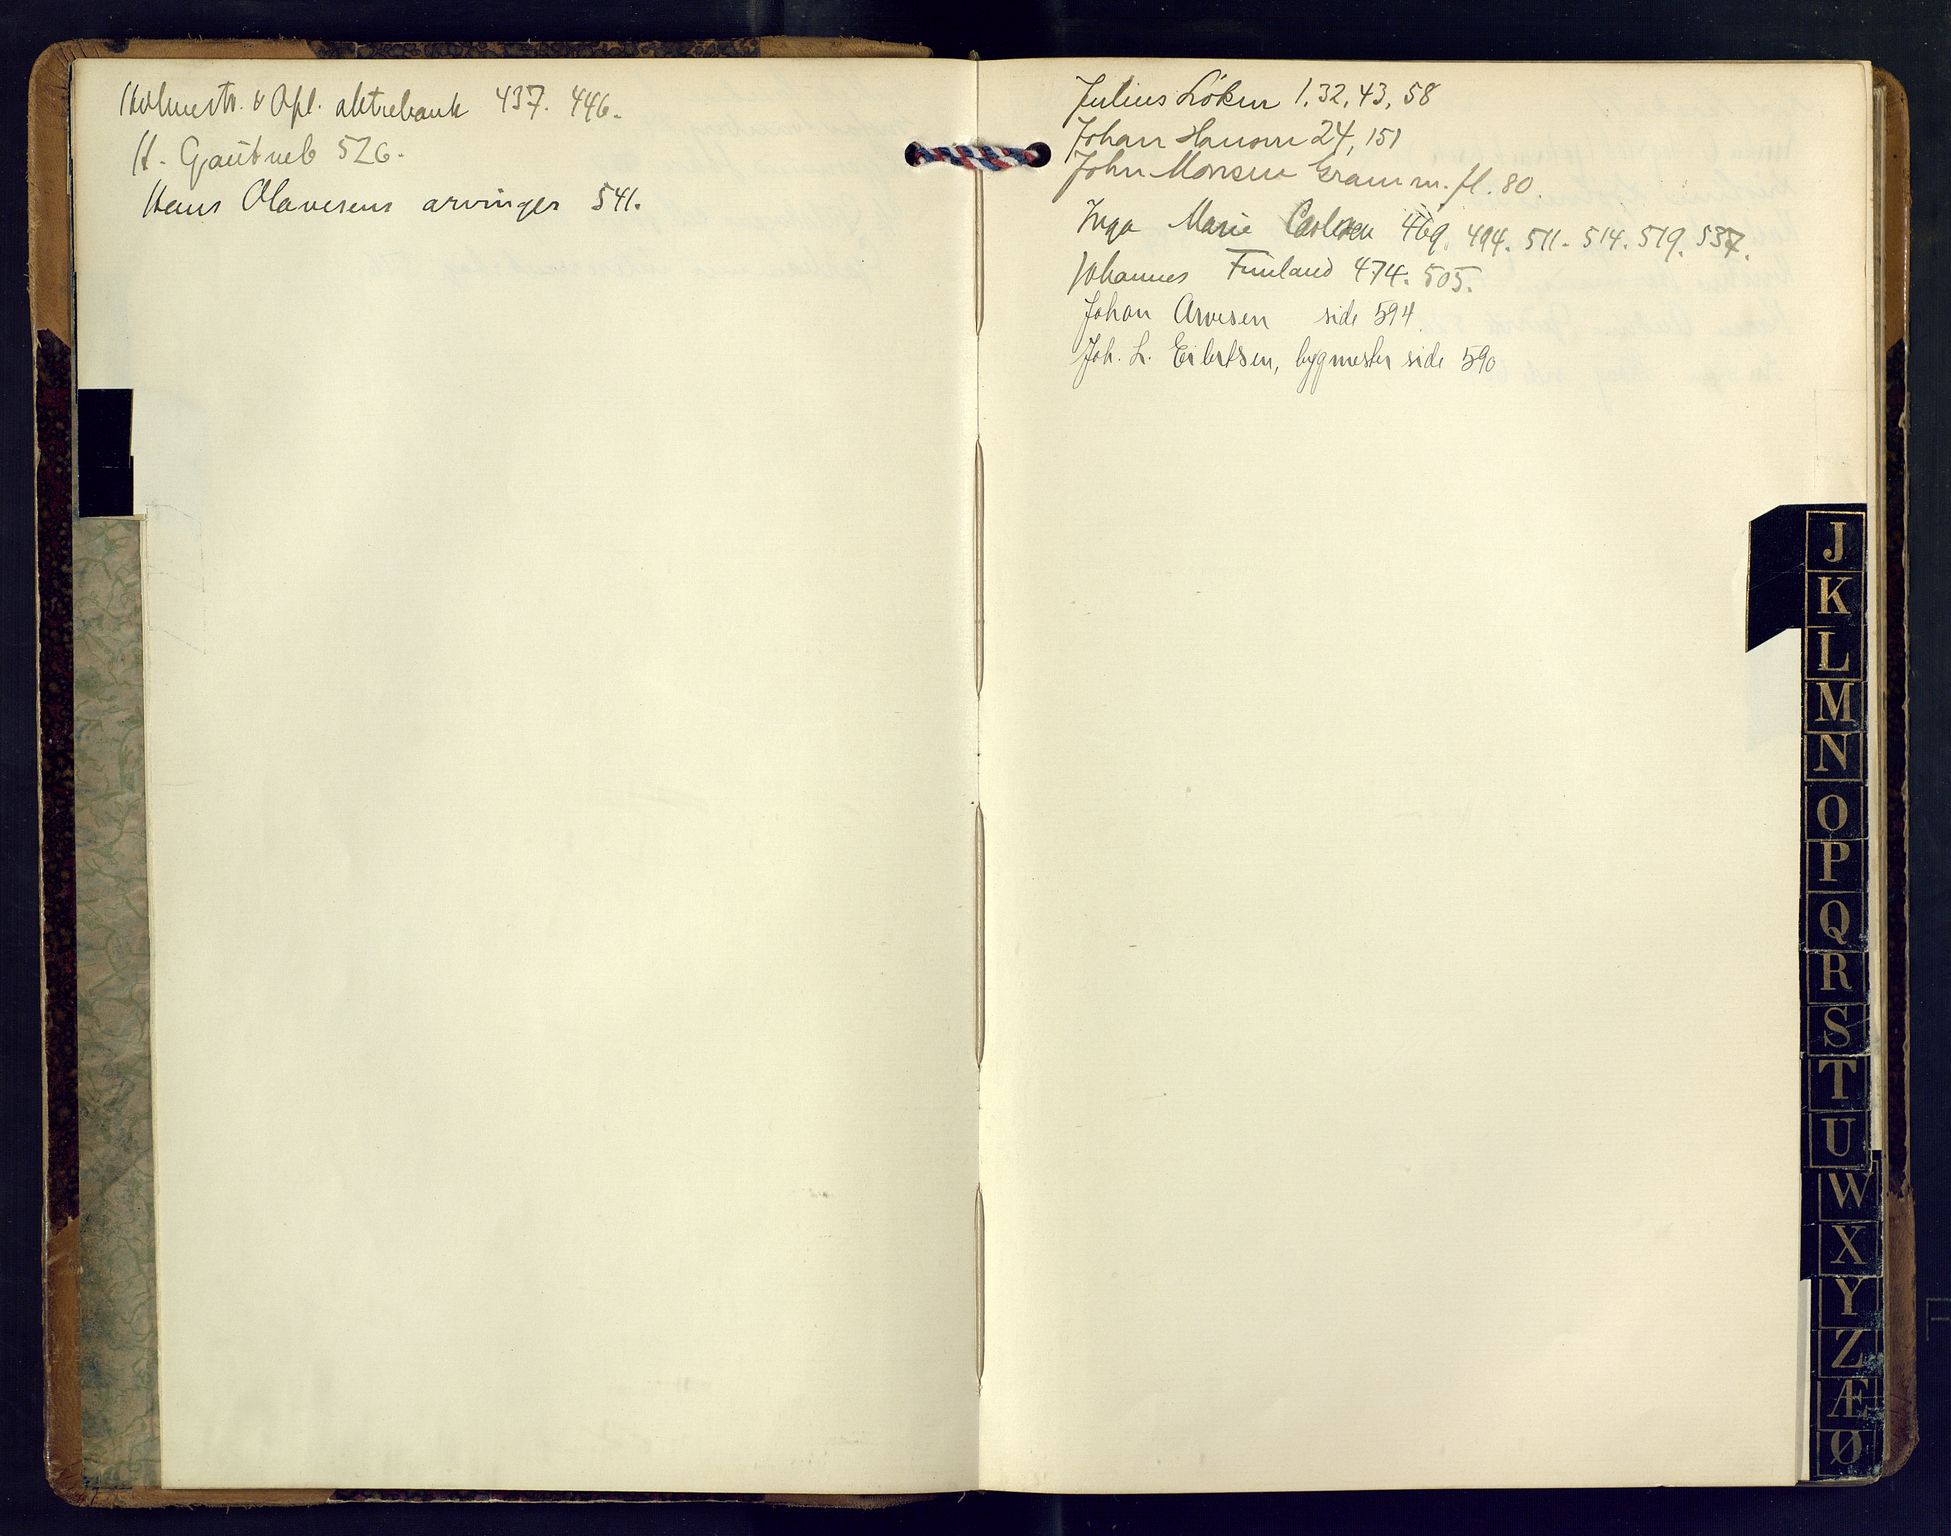 Holmestr. & Opl. aktiebank 437. 446.
H. Gautneb 526.
Hans Olavesens arvinger 541.
Julius Löken 1, 32, 43, 58
Johan Hansen 24, 151
John Monsen Gram m. fl. 80.
Inga Marie Carlsen 469. 494. 511. 514. 519. 537.
Johannes Funland 474. 505.
Johan Arvesen side 594.
Joh. L. Eilertsen, bygmester side 590
J
K
L
M
N
O
P
Q
R
S
T
U
W
X
Y
Z
Æ
Ø